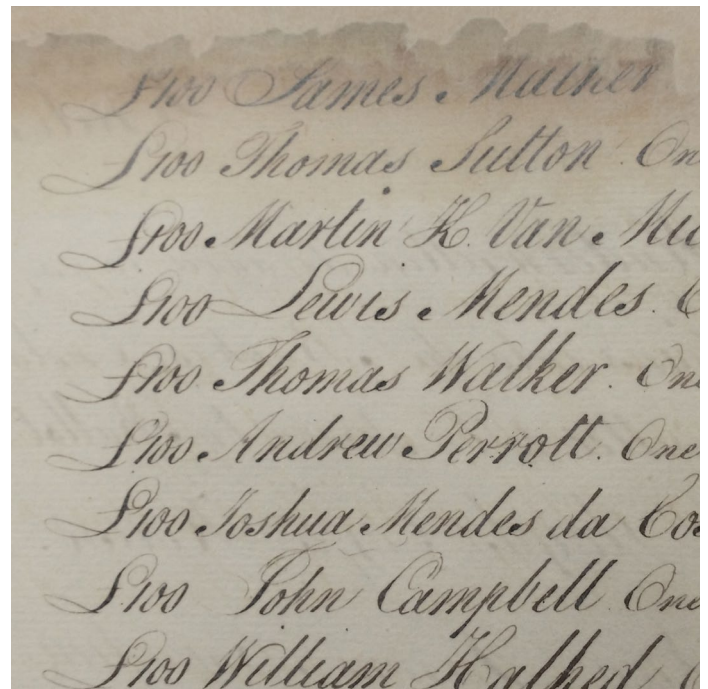 £100 James Mather
£100 Thomas Sutton On
£100 Martin K. Van Mic
£100 Lewis Mendes.
£100 Thomas Walker. One
£100 Andrew Perrott. One
£100 Joshua Mendes da Cos
£100 John Campbell One
£100 William Halhed